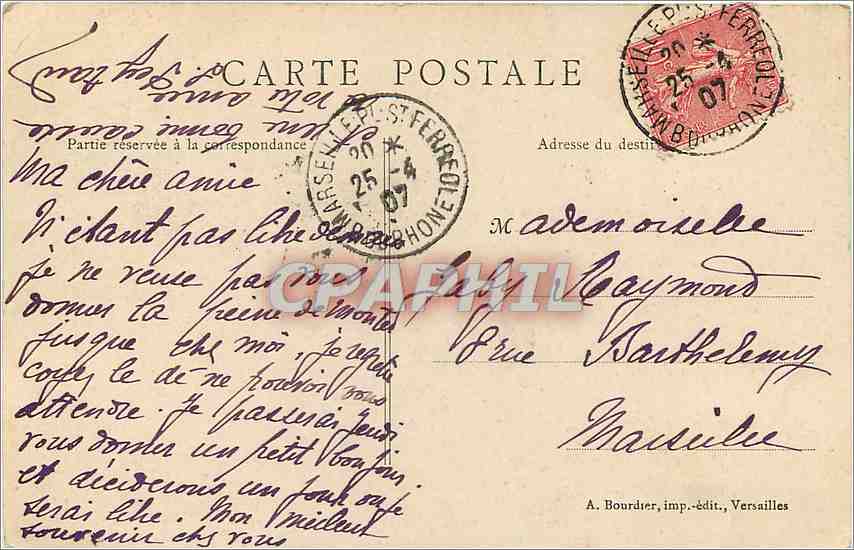 CARTE POSTALE
Partie réservée à la correspondance
Adresse du destin
MARSEILLE PL. ST FERREOL
20 *
25 - 4
07
BOUCHES DU RHONE
MARSEILLE PL. ST FERREOL
20 *
25 - 4
07
B. DU RHONE
Ma chère amie
N'étant pas libre demain
je ne veux pas vous
donner la peine de monter
jusque chez moi, je regrette
croyez le de ne pouvoir vous
attendre. Je passerai jeudi
vous donner un petit bonjour
et déciderons un jour ou je
serai libre. Mon meilleur
souvenir chez vous
votre amie
Mademoiselle
Gaby Raymond
8 rue Barthelemy
Marseille
CPAPHIL
A. Bourdier, imp.-édit., Versailles